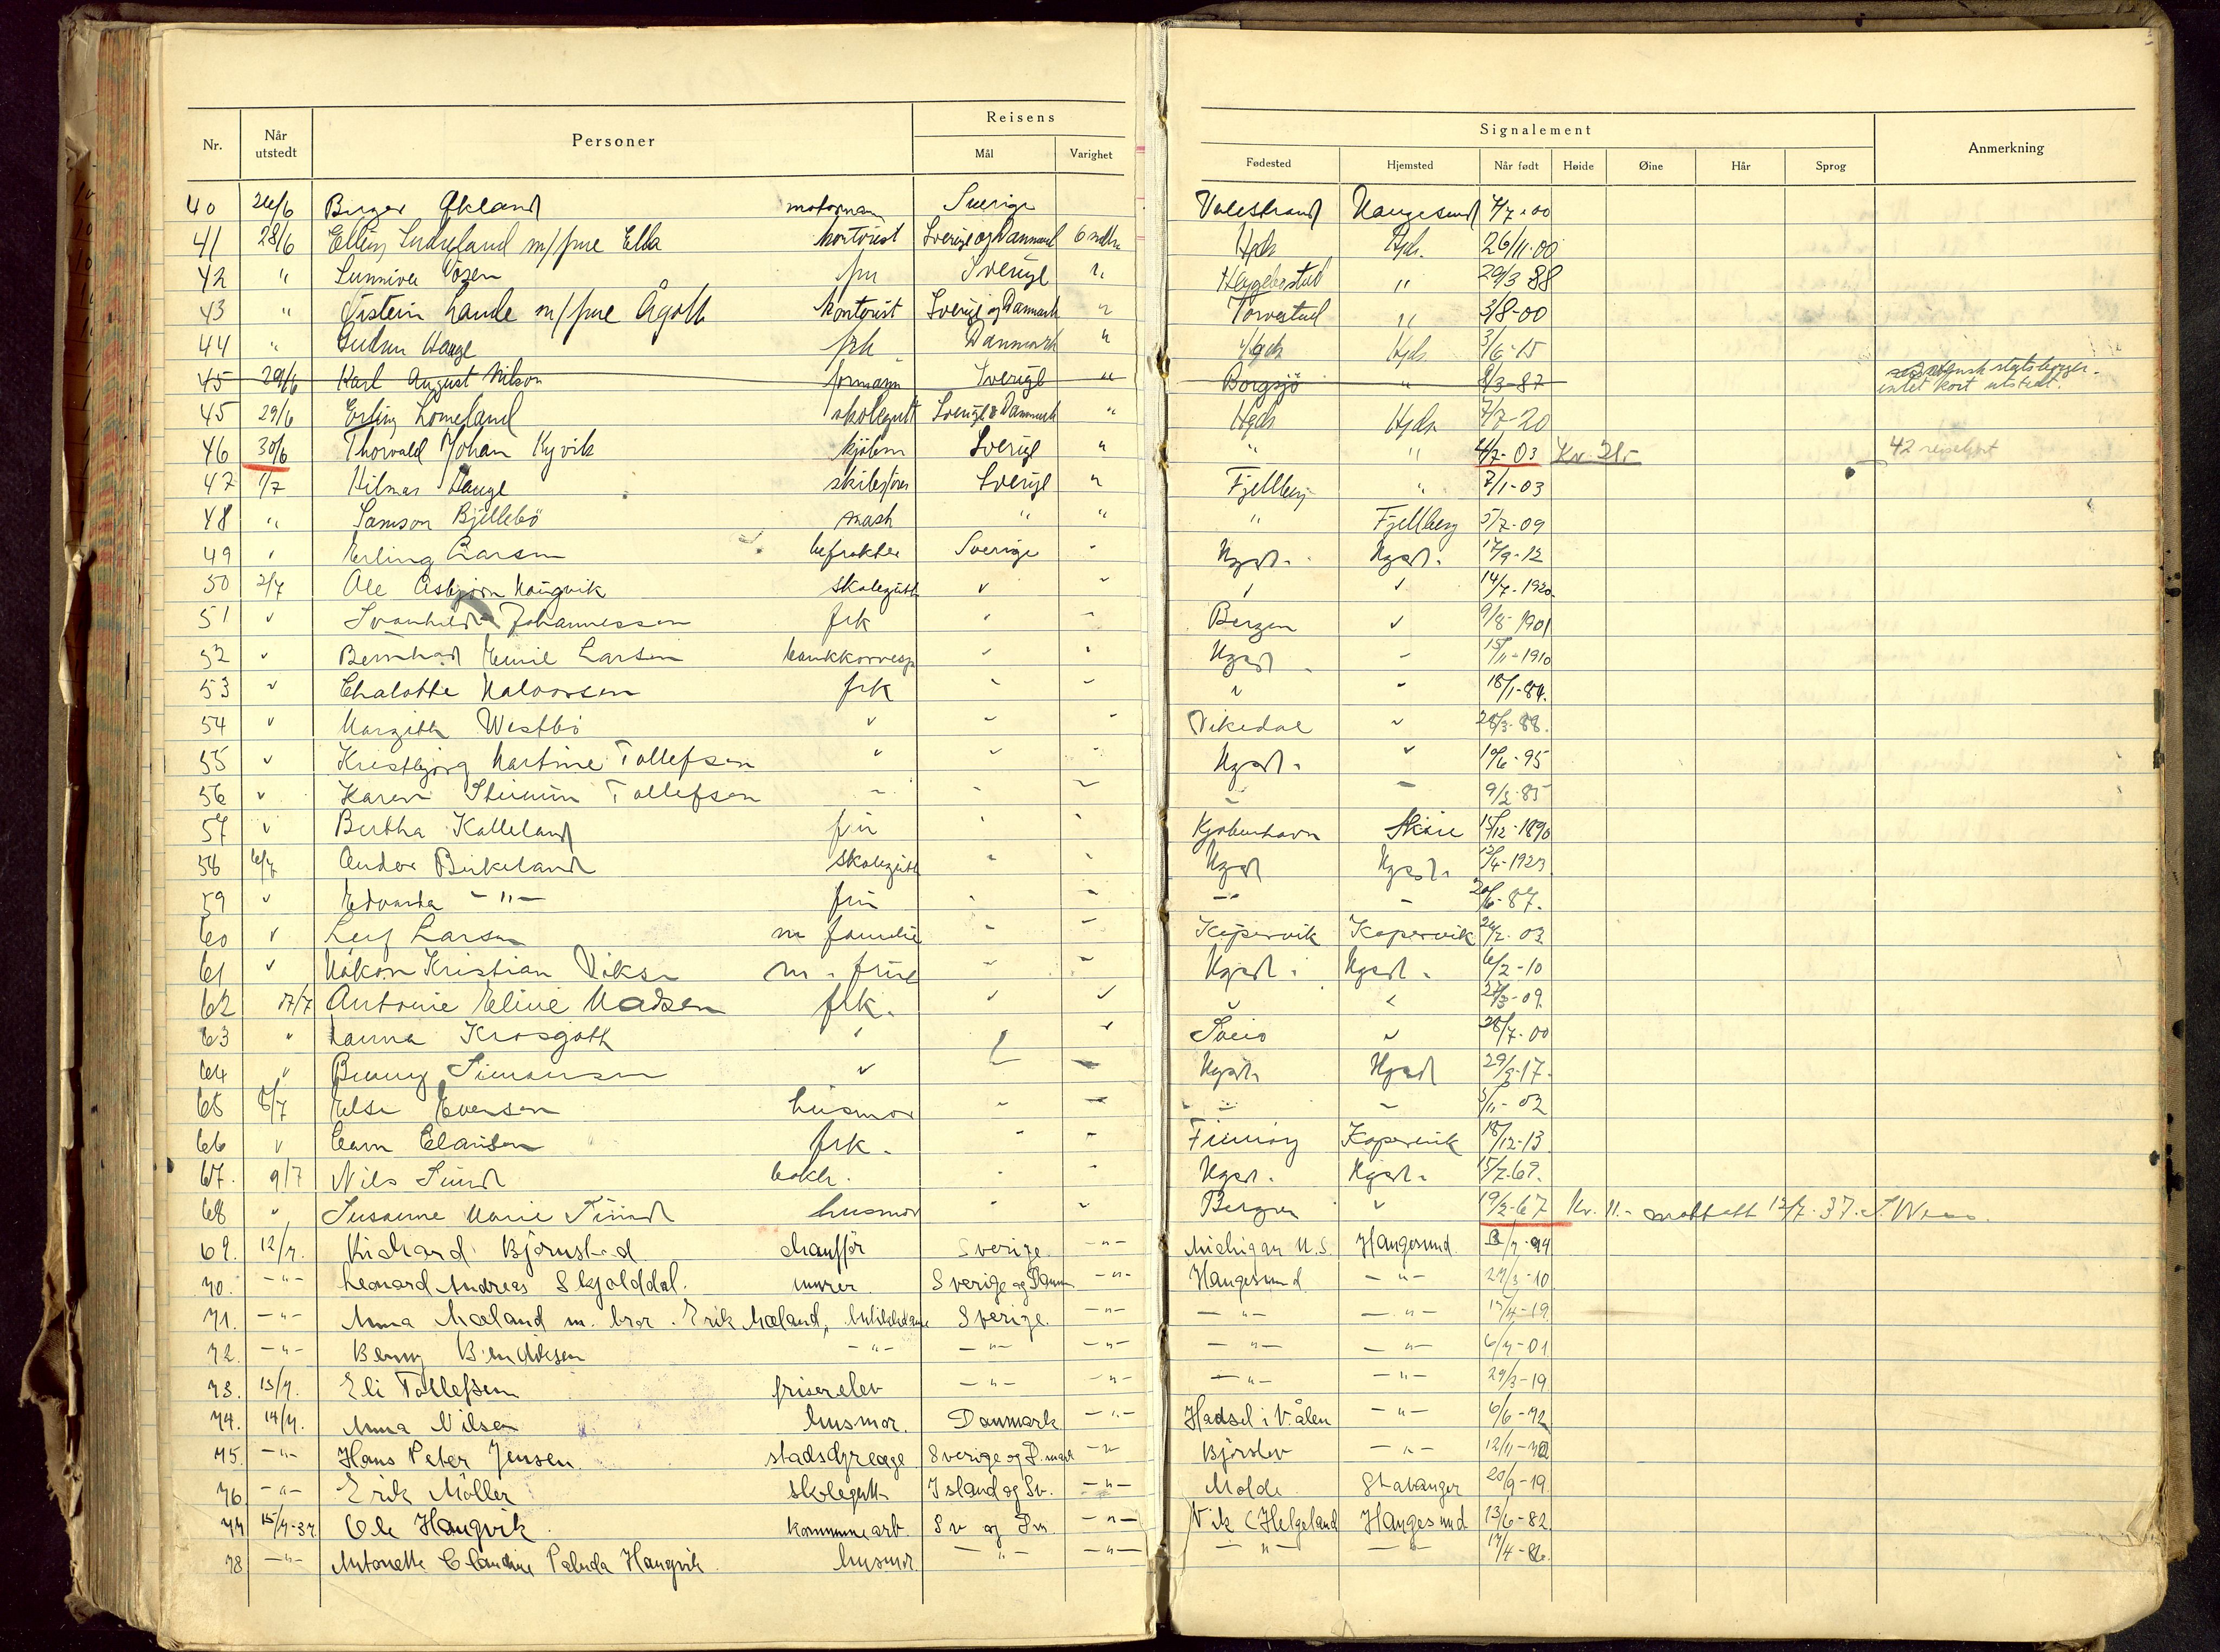 Nr. Når utstedt Personer Reisens Mål Varighet Signalement Fødested Hjemsted Når født Høide Øine Hår Sprog Anmerkning
40 26/6 Birger Økland motormann Sverige Valestrand Haugesund 4/7-00
41 28/6 Elling m/frue Ella kontorist Sverige og Danmark 6 mdr. Hgsd. Hgsd. 26/11-00
42 " Sunniva fru Sverige " " 29/3 88
43 " Øistein Lande m/frue Ågott kontorist Sverige og Danmark " Torvestad " 3/8-00
44 " Gudrun Hauge frk Danmark " Hgsd Hgsd. 3/6-15
45 29/6 Karl August Nilson formann Sverige " Borgsjö " 8/3-87 svensk statsborger. intet kort utstedt.
45 29/6 Erling Lomeland skolegutt Sverige & Danmark " Hgsd Hgsd. 7/7-20
46 30/6 Thorvald Johan Kyvik kjøbm Sverige " " " 4/7-03 Kr. 21.- 42 reisekort
47 1/7 Hilmar Hauge skibsfører Sverige " Fjellberg " 7/1-03
48 " Samson Bjellebö mash " " " Fjellberg 5/7-09
49 " Erling Larsen befrakter Sverige " Hgsd. Hgsd. 17/9-12
50 2/7 Ole Asbjørn Haugvik skolegutt " " " " 14/7-1920.
51 " Svanhild Johannessen frk " " Bergen " 9/8-1901
52 " Bernhard Emil Larsen bankkorresp " " Hgsd. " 15/11-1910
53 " Chalotte Halvorsen frk " " " " 18/1-84.
54 " Margith Westbö " " " Vikedal " 28/3-88.
55 " Kristbjørg Martine Tollefsen " " " Hgsd. " 19/6-95
56 " Karen Tollefsen " " " " " 9/2-85
57 " Bertha Kalleland fru " " Kjøbenhavn Skåre 15/12-1890
58 6/7 Andor Birkeland skolegutt " " Hgsd Hgsd. 12/4-1923
59 " Edvarda -"- fru " " " " 20/6-87.
60 " Leif Larsen m familie " " Kopervik Kopervik 24/2-03
61 " Håkon Kristian Vikse m. frue " " Hgsd. Hgsd. 6/2-10
62 7/7 Antonie Eline Madsen frk. " " " " 27/3-09.
63 " Krosgöth " " " Sveio " 28/7-00
64 " Simonsen " " " Hgsd. Hgsd 29/9-17.
65 8/7 Else Evensen husmor " " " " 3/11-02
66 " Clausen frk. " " Finnöy Kopervik 18/12-13
67. 9/7 Nils Sund bokh. " " Hgsd. Hgsd. 15/7-67.
68 " Susanne Marie Sund husmor " " Bergen " 19/2-67 Kr. 11.- mottatt 12/7-37.
69. 12/7. Richard Björnstad chaufför Sverige -"- Michigan U.S. Haugesund. /7-94
70. -"- Leonard Andreas Skjolddal. murer. Sverige og Danm -"- Haugesund -"- 27/3-10.
71. -"- Anna Mæland m. bror. Erik Mæland, butikkdame Sverige. -"- -"- -"- 17/4-19.
72. -"- Benny Bendiksen -"- -"- -"- -"- -"- 6/7-01
73. 13/7. Eli Tollefsen friserelev -"- -"- -"- -"- 29/3-19
74. 14/7. Anna Nilsen husmor. Danmark -"- Hadsel i V.ålen -"- 6/6-92
75. -"- Hans Peter Jensen stadsdyrlæge Sverige og D.mark -"- Björslev -"- 12/11-
76 -"- Erik Möller skolegutt Island og Sv. -"- Molde Stavanger 20/9-19.
77 15/7-37. Ole Haugvik kommunearb. Sv og Dm. -"- Vik (Helgeland Haugesund 13/6-82.
78 -"- Antonette Claudine Haugvik. husmor. " -"- -"- -"- 17/4-86.